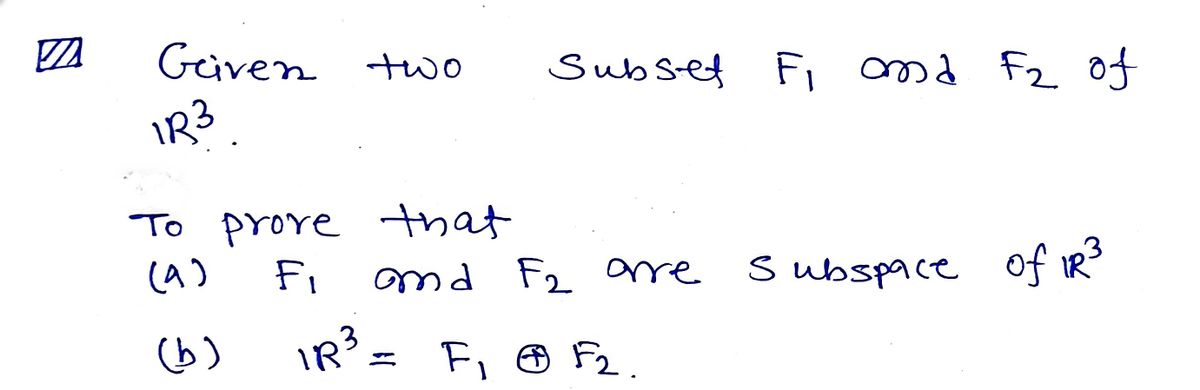 Given two subset F₁ and F₂ of
ℝ³.
To prove that
(a) F₁ and F₂ are subspace of ℝ³
(b) ℝ³ = F₁ ⊕ F₂.